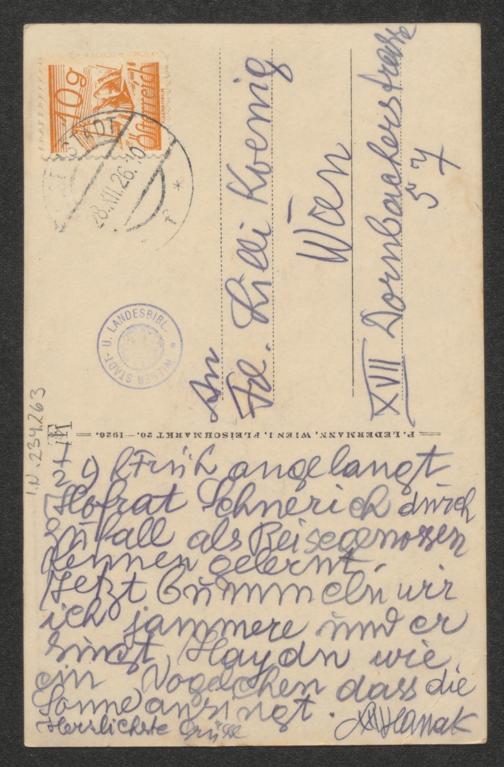 10g
Österreich
28.XII.26
WIENER STADT- U. LANDESBIBL.
An
Frl. Lilli Koenig
Wien
XVII Dornbacherstrasse
57
P. LEDERMANN, WIEN I, FLEISCHMARKT 20. — 1926.
I.N. 234263
Früh angelangt
Hofrat Schnerich durch
Zufall als Reisegenossen
kennen gelernt.
Jetzt bummeln wir
ich jammere und er
singt Haydn wie
ein Vogelchen dass die
Sonne ansingt.
Herrlichste Grüsse
Hanak